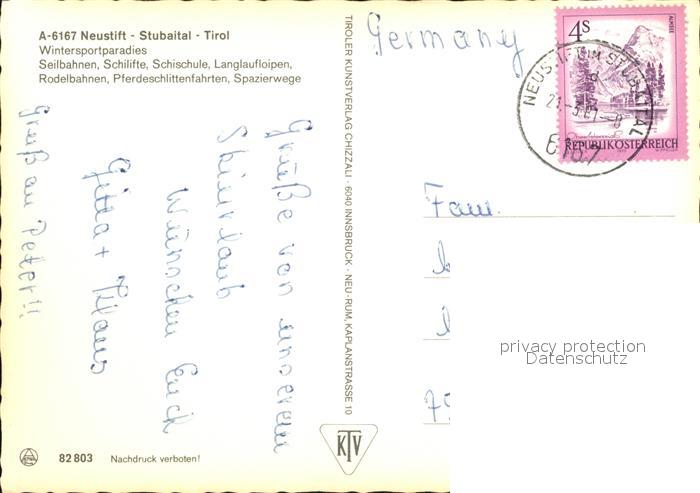 A-6167 Neustift - Stubaital - Tirol
Wintersportparadies
Seilbahnen, Schilifte, Schischule, Langlaufloipen,
Rodelbahnen, Pferdeschlittenfahrten, Spazierwege
Grüße von unserem
Skiurlaub
wünschen Euch
Gitta + Klaus
Gruß an Peter!!
82 803 Nachdruck verboten!
TIROLER KUNSTVERLAG CHIZZALI · 6040 INNSBRUCK · NEU-RUM, KAPLANSTRASSE 10
KTV
Germany
4S
ALMSEE
REPUBLIK ÖSTERREICH
NEUSTIFT IM STUBAITAL
6167
Fam.
privacy protection
Datenschutz